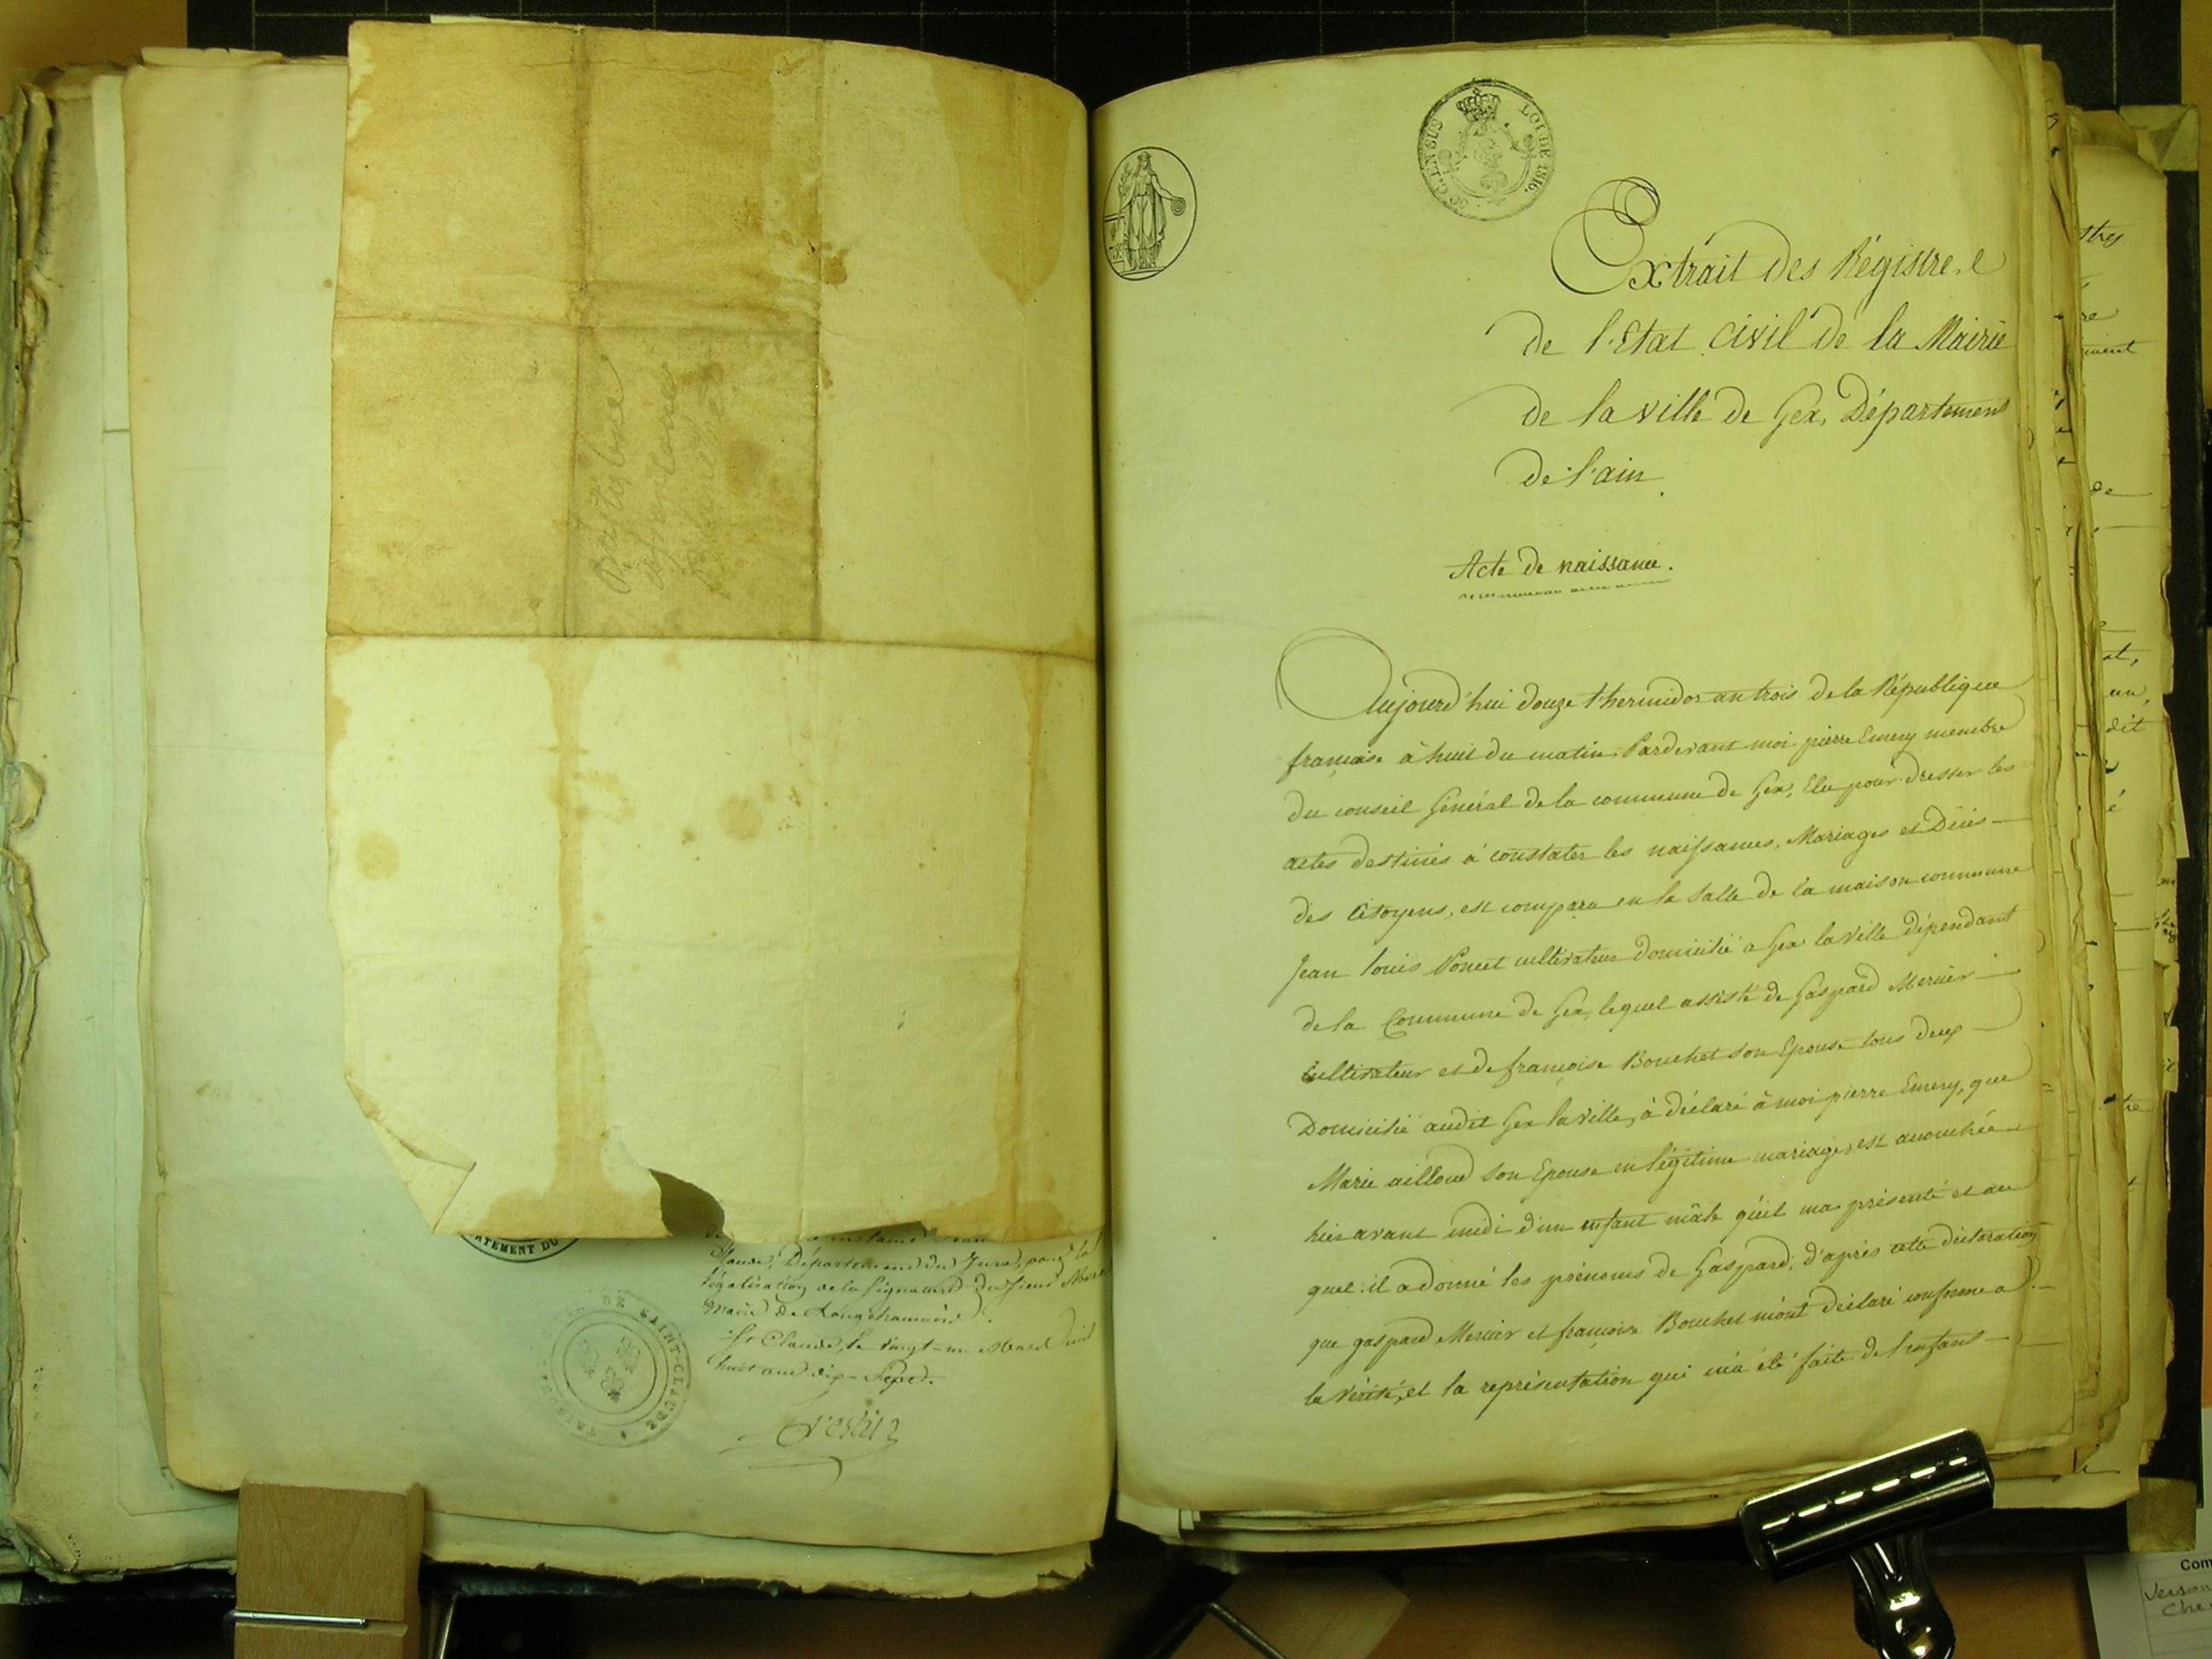 Claude, Département du Jura, pour la
légalisation de la signature du sieur
Maire de Longchaumois.
St Claude, le vingt-un Mars mil
huit cent dix-sept.
DE SAINT-CLAUDE
RTEMENT DU
LOI DE 1816.
Extrait des Régistres
de l'Etat civil de la Mairie
de la ville de Gex, Département
de l'ain
Acte de naissance.
Aujourd'hui douze thermidor an trois de la République
française à huit du matin Pardevant moi pierre Emery membre
du conseil Général de la commune de Gex, Elu pour dresser les
actes destinés à constater les naissances, Mariages et Décès
des Citoyens, est comparu en la salle de la maison commune
Jean louis Poncet cultivateur domicilié a Gex la ville dépendant
de la Commune de Gex, lequel assisté de Gaspard Mercier
Cultivateur et de françoise Bouchet son Epouse tous deux
Domicilié audit Gex la ville, à déclaré à moi pierre Emery, que
Marie ailloud son Epouse en légitime mariage, est accouchée
hier avant midi d'un enfant mâle qu'il ma présenté et au
quel il a donné les prénoms de Gaspard, d'après cette déclaration
que gaspard Mercier et françoise Bouchet m'ont déclaré conforme a
la vérité, et la représentation qui m'a été faite de l'enfant